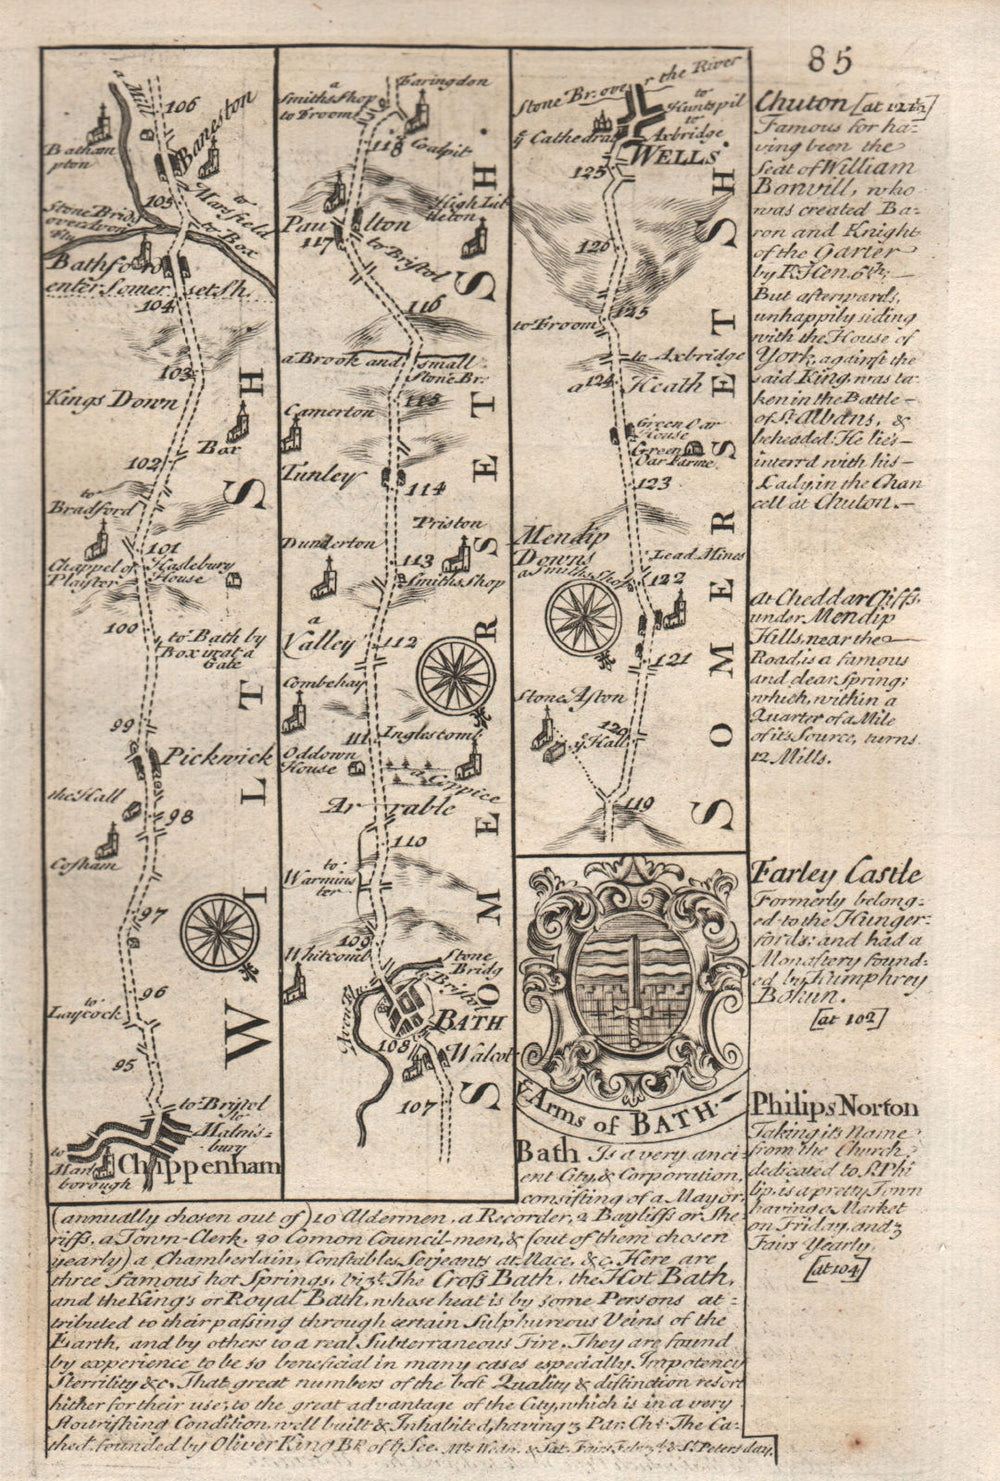 85
a Mill
106
Baneston
Batham
pton
105
to
Marsfield
to Box
Stone Bridg
over Avon
Flu
Bathford
enter Somersetsh.
104
103
Kings Down
Bar
102
to
Bradford
101
Chappel of
Playster
Haslebury
House
100
to Bath by
Box wat a
Gate
99
Pickwick
the Hall
98
Cosham
97
to
Laycock
96
95
to Bristol
to
Malmis=
bury
to
Marl
borough
Chippenham
WILTSH
a
Smiths Shop
to Froom
Faringdon
118
Coalpit
Paulton
117
High Lit
tleton
to Bristol
116
a Brook and small
Stone Br.
115
Camerton
Tunley
114
Dunkerton
Priston
113
Smiths Shop
a
Valley
112
Combehay
111
Inglescomb
Oddown
House
a Coppice
Arrable
110
to
Warmins
ter
109
Whitcomb
Stone
Bridg
to Bristol
Avon Flu
BATH
108
Walcot
107
SOMERSETSH.
Stone Br. over the River
to
Huntspil
to
Axbridge
ye Cathedral
WELLS.
125
126
125
to Froom
to Axbridge
a 124 Heath
Green Oar
House
Green
Oar Farme
123
Mendip
Downs
Lead Mines
a Smiths Shop
122
121
Stone Aston
120
ye Hall
119
SOMERSETSH
Arms of BATH.
Chuton [at 121½]
Famous for ha-
ving been the
Seat of William
Bonvill, who
was created Ba-
ron and Knight
of the Garter
by K. Hen. 6th.
But afterwards,
unhappily siding
with the House of
York, against the
said King, was ta-
ken in the Battle
of St. Albans, &
beheaded. He lies
interr'd with his
Lady, in the Chan
cell at Chuton.
At Cheddar Cliffs,
under Mendip
Hills, near the
Road, is a famous
and clear Spring;
which, within a
Quarter of a Mile
of its Source, turns
12 Mills.
Farley Castle
Formerly belong-
ed to the Hunger-
fords; and had a
Monastery found-
ed by Humphrey
Bohun.
[at 102]
Philips Norton
Taking its Name
from the Church,
dedicated to St. Phi
lip, is a pretty Town
having a Market
on Friday, and 3
Fairs Yearly.
[at 104]
Bath Is a very anci-
ent City, & Corporation,
consisting of a Mayor,
(annually chosen out of) 10 Aldermen, a Recorder, 2 Bayliffs or She
riffs, a Town-Clerk, 20 Comon Council-men, & (out of them chosen
yearly) a Chamberlain, Constables, Serjeants at Mace, &c. Here are
three famous hot Springs, vizt. The Cross Bath, the Hot Bath,
and the King's or Royal Bath, whose heat is by some Persons at-
tributed to their passing through certain Sulphureous Veins of the
Earth, and by others to a real Subterraneous Fire. They are found
by experience to be so beneficial in many cases especially Impotency
Sterrility &c. That great numbers of the best Quality & distinction resort
hither for their use; to the great advantage of the City, which is in a very
flourishing Condition, well built & Inhabited, having 3 Par. Chs. The Ca-
thed. founded by Oliver King Bp. of ye See. Mts. Weds. & Sat. Fairs Febr. 3d. & St. Peters day.